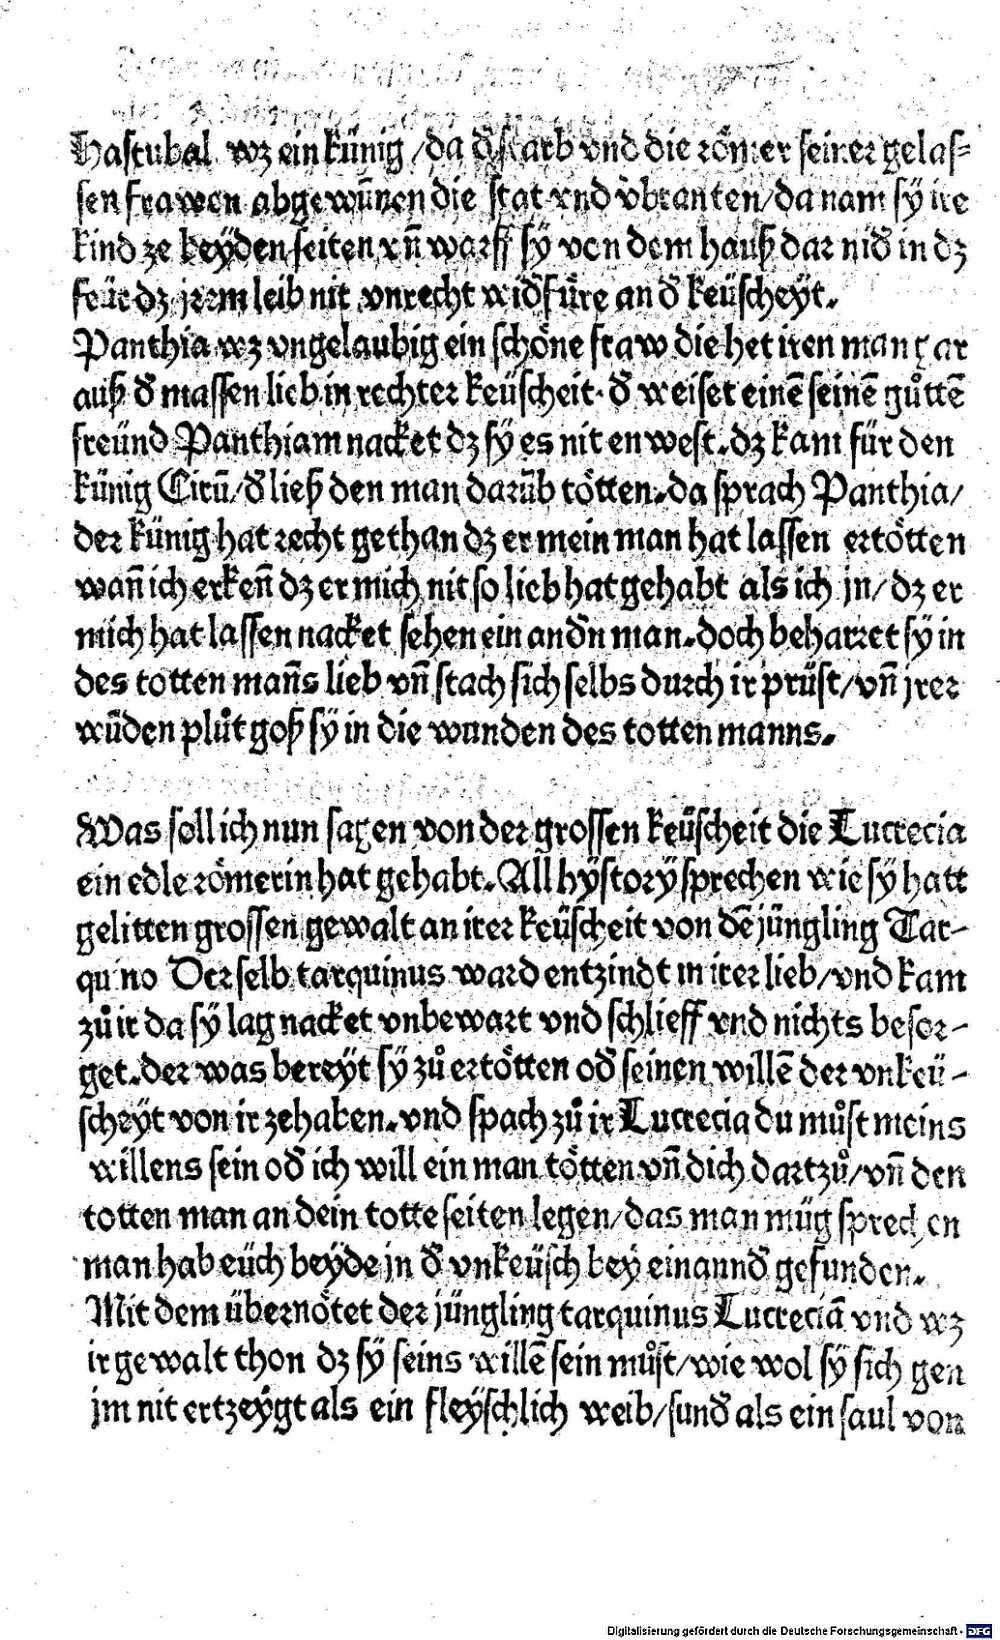 Hastubal wz ein künig /da d̕ starb vnd die römer seiner gelas⸗
sen frawen abgewūnen die stat vnd v̕branten/da nam sÿ ire
kind ze beÿden seiten vn̄ warff sÿ von dem hauß dar nid̕ in dz
feür dz jrem leib nit vnrecht wid̕füre an d̕ keüscheÿt.
Panthia wz vngelaubig ein schöne fraw die het iren man gar
auß d̕ massen lieb in rechter keüscheit. d̕ weiset einē seinē gůttē
freünd Panthiam nacket dz sÿ es nit en west. dz kam für den
künig Cirū/d̕ ließ den man darüb tötten. da sprach Panthia/
der künig hat recht gethan dz er mein man hat lassen ertötten
wan̄ ich erken̄ dz er mich nit so lieb hat gehabt als ich jn/ dz er
mich hat lassen nacket sehen ein and̕n man. doch beharret sÿ in
des totten man̄s lieb vn̄ stach sich selbs durch ir prüst/vn̄ jrer
wūden plůt goß sÿ in die wunden des totten manns.
Was soll ich nun sagen von der grossen keüscheit die Lucrecia
ein edle römerin hat gehabt. All hÿstorÿ sprechen wie sÿ hatt
gelitten grossen gewalt an irer keüscheit von dē jüngling Tar⸗
quino Der selb tarquinus ward entzindt in irer lieb/vnd kam
zů ir da sÿ lag nacket vnbewart vnd schlieff vnd nichts besor⸗
get. der was bereÿt sÿ zů ertötten od̕ seinen willē der vnkeü⸗
scheÿt von ir zehaben. vnd spach zů ir Lucrecia du můst meins
willens sein od̕ ich will ein man tötten vn̄ dich dartzů/vn̄ den
totten man an dein totte seiten legen/das man müg sprechen
man hab eüch beÿde jn d̕ vnkeüsch beÿ einannd̕ gefunden.
Mit dem übernötet der jüngling tarquinus Lucreciā vnd wz
ir gewalt thon dz sÿ seins willē sein můst/wie wol sÿ sich gen
jm nit ertzeÿgt als ein fleÿschlich weib/sund̕ als ein saul von
Digitalisierung gefördert durch die Deutsche Forschungsgemeinschaft - DFG